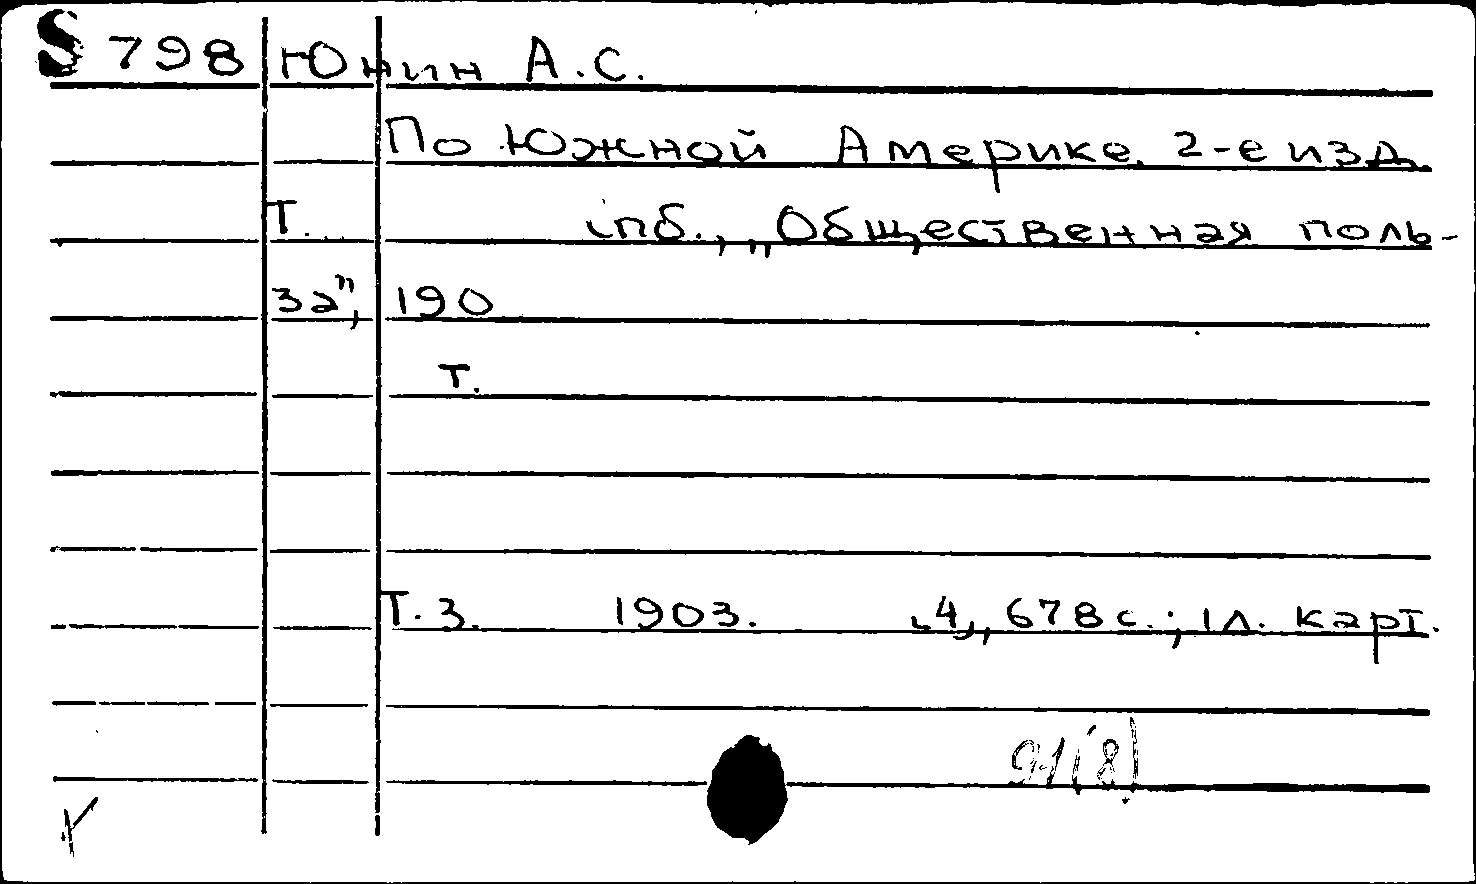 S 798 Юнин А.С.
По Южной Америке. 2-е изд.
Т. Спб., „Общественная поль-
за", 190
т.
Т. 3. 1903. [4], 678 с.; 1 л. карт.
91(8)